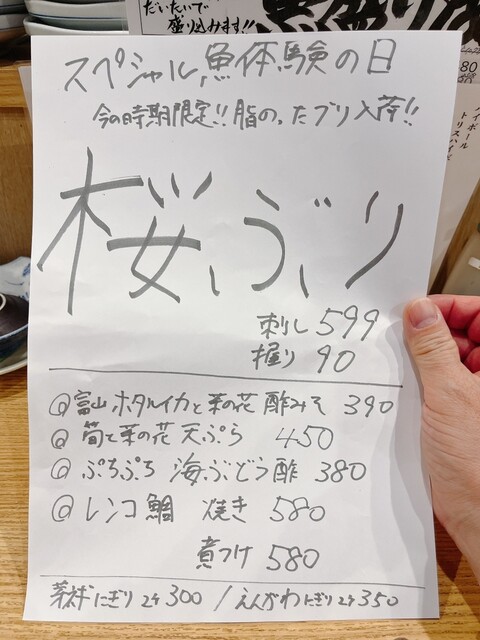 だいたいで
盛り込みます!!
スペシャル魚体験の日
今の時期限定!!脂のったブリ入荷!!
桜ぶり
刺し 599
握り 90
@富山ホタルイカと菜の花 酢みそ 390
@筍と菜の花 天ぷら 450
@ぷちぷち 海ぶどう酢 380
@レンコ鯛 焼き 580
煮つけ 580
にぎり2ケ300 / えんがわにぎり2ケ350
ハイボール
トリスハイボ